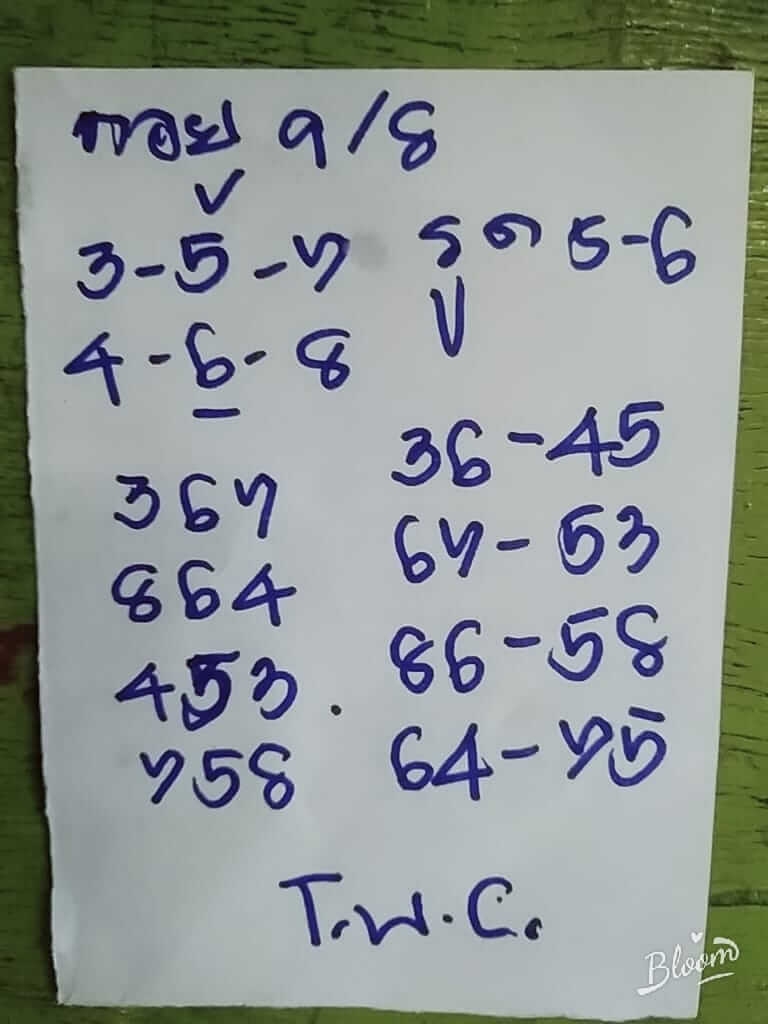 ฮอย 9/8
3-5-7 รูด 5-6
4-6-8
367
864
453
758
36-45
67-53
86-58
64-75
T.W.C.
Bloom